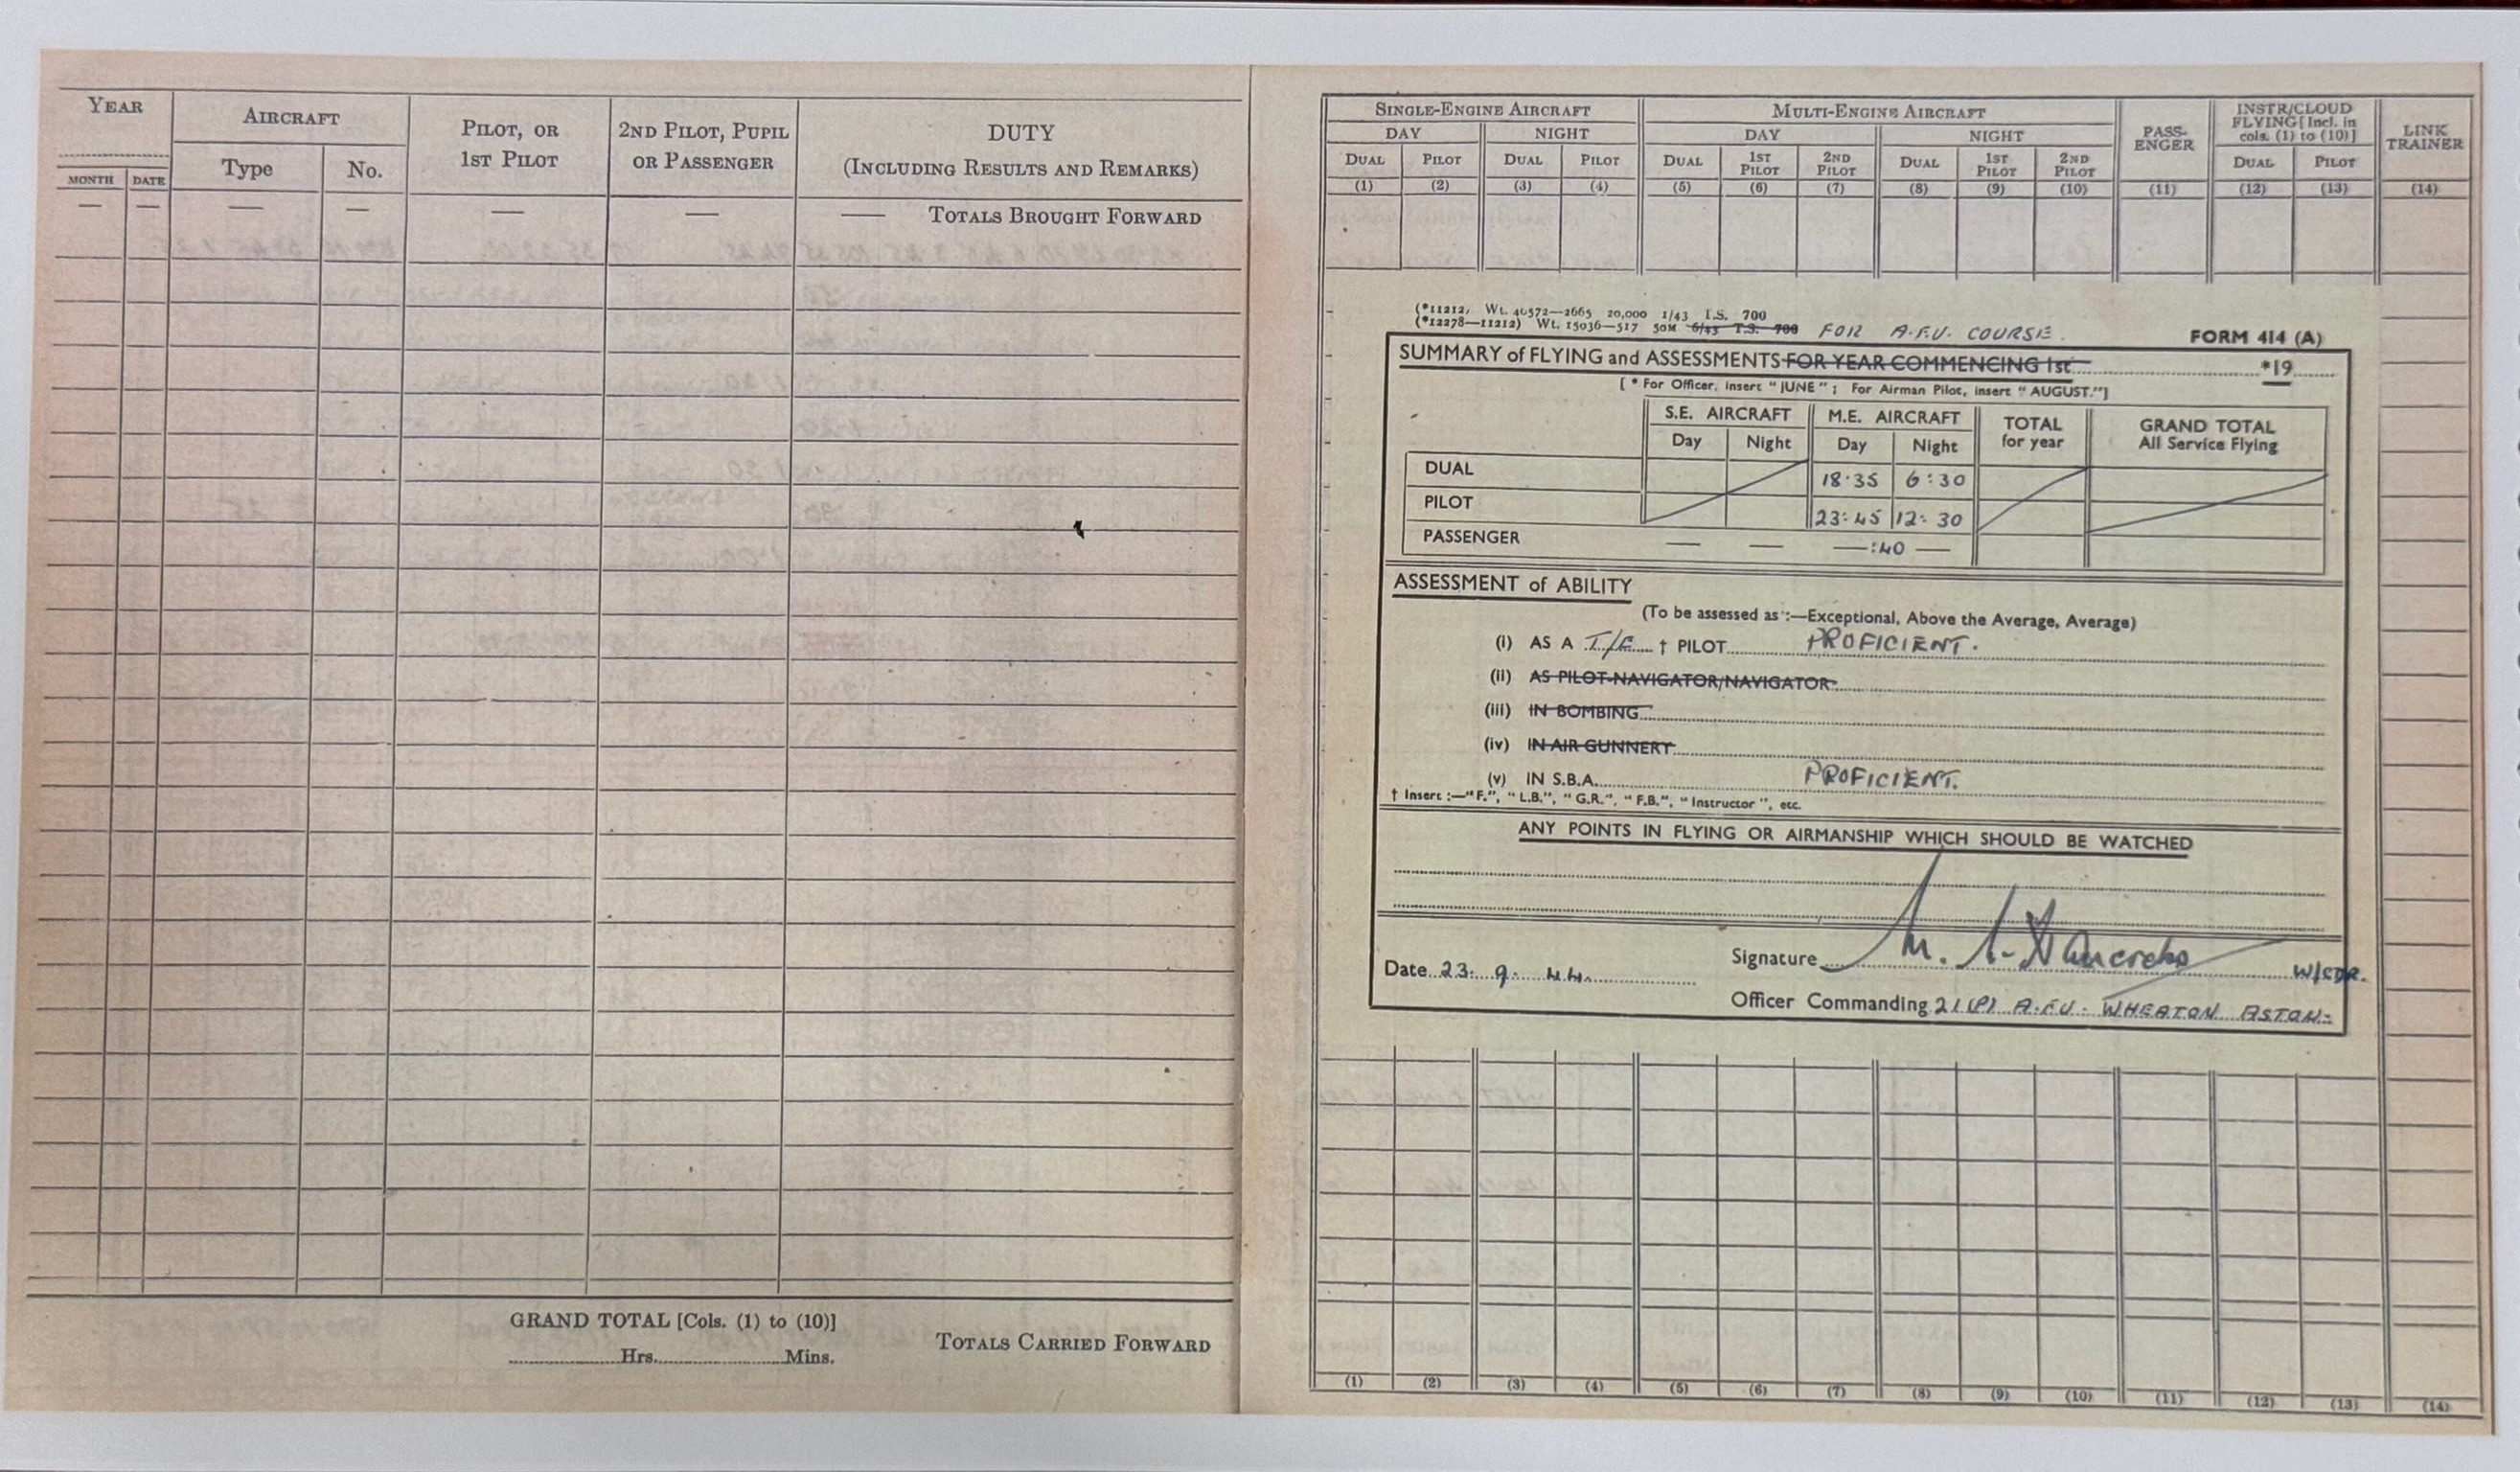 YEAR
AIRCRAFT
PILOT, OR 1ST PILOT
2ND PILOT, PUPIL OR PASSENGER
DUTY
(INCLUDING RESULTS AND REMARKS)
MONTH DATE Type No.
— — — — — — —— TOTALS BROUGHT FORWARD
GRAND TOTAL [Cols. (1) to (10)]
Hrs. Mins.
TOTALS CARRIED FORWARD
SINGLE-ENGINE AIRCRAFT MULTI-ENGINE AIRCRAFT PASS-ENGER INSTR/CLOUD FLYING [Incl. in cols. (1) to (10)] LINK TRAINER
DAY NIGHT DAY NIGHT
DUAL PILOT DUAL PILOT DUAL 1ST PILOT 2ND PILOT DUAL 1ST PILOT 2ND PILOT DUAL PILOT
(1) (2) (3) (4) (5) (6) (7) (8) (9) (10) (11) (12) (13) (14)
(*11212, Wt. 40572—2665 20,000 1/43 T.S. 700
(*12278—11212) Wt. 15036—517 50M 6/43 T.S. 700 FOR A.F.U. COURSE.
FORM 414 (A)
SUMMARY of FLYING and ASSESSMENTS FOR YEAR COMMENCING 1st *19
[ * For Officer, insert "JUNE" ; For Airman Pilot, insert "AUGUST."]
S.E. AIRCRAFT M.E. AIRCRAFT TOTAL for year GRAND TOTAL All Service Flying
Day Night Day Night
DUAL 18·35 6:30
PILOT 23:45 12:30
PASSENGER — — —:40 —
ASSESSMENT of ABILITY
(To be assessed as :—Exceptional, Above the Average, Average)
(i) AS A T/E † PILOT PROFICIENT.
(ii) AS PILOT-NAVIGATOR/NAVIGATOR
(iii) IN BOMBING
(iv) IN AIR GUNNERY
(v) IN S.B.A. PROFICIENT.
† Insert :—"F.", "L.B.", "G.R.", "F.B.", "Instructor", etc.
ANY POINTS IN FLYING OR AIRMANSHIP WHICH SHOULD BE WATCHED
Date 23. 9. 44. Signature W/CDR.
Officer Commanding 21(P) A.F.U. WHEATON ASTON.
(1) (2) (3) (4) (5) (6) (7) (8) (9) (10) (11) (12) (13) (14)